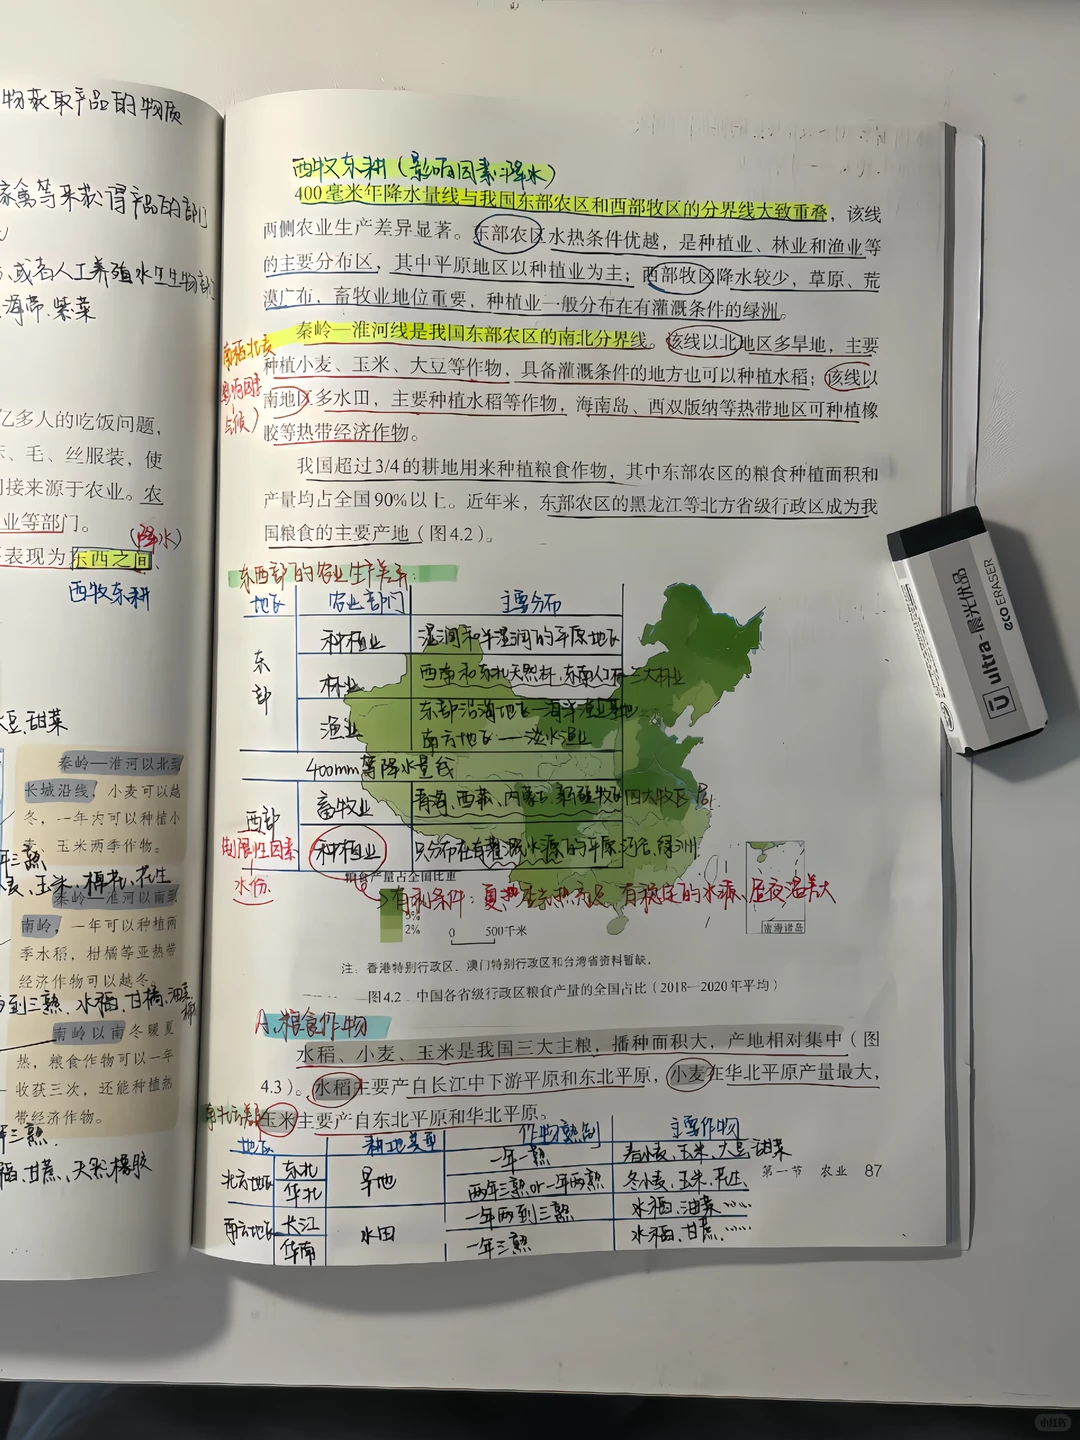 物获取产品的物质
家禽等来获得产品的部门
或者人工养殖水生生物
海带.紫菜
亿多人的吃饭问题,
毛、丝服装,使
间接来源于农业。农
业等部门。
(降水)
表现为东西之间、
西牧东耕
甜菜
秦岭—淮河以北到
长城沿线,小麦可以越
冬,一年内可以种植小
麦、玉米两季作物。
玉米.棉花.花生
秦岭—淮河以南到
南岭,一年可以种植两
季水稻,柑橘等亚热带
经济作物可以越冬。
到三熟.水稻.甘橘.油菜
南岭以南冬暖夏
热,粮食作物可以一年
收获三次,还能种植热
带经济作物。
年三熟.
稻.甘蔗.天然橡胶
西牧东耕(影响因素:降水)
400毫米年降水量线与我国东部农区和西部牧区的分界线大致重叠,该线
两侧农业生产差异显著。东部农区水热条件优越,是种植业、林业和渔业等
的主要分布区,其中平原地区以种植业为主;西部牧区降水较少,草原、荒
漠广布,畜牧业地位重要,种植业一般分布在有灌溉条件的绿洲。
秦岭—淮河线是我国东部农区的南北分界线。该线以北地区多旱地,主要
种植小麦、玉米、大豆等作物,具备灌溉条件的地方也可以种植水稻;该线以
南地区多水田,主要种植水稻等作物,海南岛、西双版纳等热带地区可种植橡
胶等热带经济作物。
南稻北麦
影响因素
气候)
我国超过3/4的耕地用来种植粮食作物,其中东部农区的粮食种植面积和
产量均占全国90%以上。近年来,东部农区的黑龙江等北方省级行政区成为我
国粮食的主要产地(图4.2)。
东西部的农业生产差异:
地区 农业部门 主要分布
东部 种植业 湿润和半湿润的平原地区
林业 西南和东北天然林.东南人工林三大林业
渔业 东部沿海地区—海洋渔业基地
南方地区——淡水渔业
400mm等降水量线
西部 畜牧业 青海、西藏、内蒙古、新疆牧区四大牧区
种植业 只分布在有灌溉水源的平原.河谷.绿洲
限制性因素
水份
粮食产量占全国比重
有利条件:夏季光热充足 有稳定的水源 昼夜温差大
2%
0 500千米
南海诸岛
注:香港特别行政区、澳门特别行政区和台湾省资料暂缺。
图4.2 中国各省级行政区粮食产量的全国占比(2018—2020年平均)
A.粮食作物
水稻、小麦、玉米是我国三大主粮,播种面积大,产地相对集中(图
4.3)。水稻主要产自长江中下游平原和东北平原,小麦在华北平原产量最大,
玉米主要产自东北平原和华北平原。
南北方差异
地区 耕地类型 作物熟制 主要作物
北方地区 东北 旱地 一年一熟 春小麦、玉米、大豆、甜菜
华北 两年三熟or一年两熟 冬小麦、玉米、花生
南方地区 长江 水田 一年两到三熟 水稻、油菜……
华南 一年三熟 水稻、甘蔗……
第一节 农业 87
ultra-晨光优品
eco ERASER
小红书